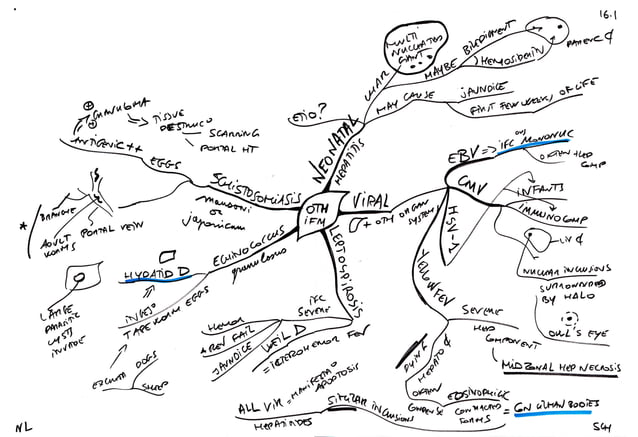 16.1
MULTI
NUCLEATED
GIANT
CHAR
MAYBE
BILE PIGMENT
HEMOSIDERIN
PARENC
MAY CAUSE
JAUNDICE
FIRST FEW WEEKS OF LIFE
ETIO?
NEONATAL
HEPATITIS
OTH
IFM
VIRAL
+ OTH ORGAN
SYSTEMS
EBV => IFC MONONUC
CMV
INFANTS
IMMUNOCOMP
NUCLEAR INCLUSIONS
SURROUNDED
BY HALO
OWL'S EYE
HSV-1
YELLOW FEV
SEVERE
HEP
COMPONENT
MIDZONAL HEP NECROSIS
DYING
HEPATO
OFTEN
CONDENSE
EOSINOPHILIC
CONTRACTED
FORMS
= COUNCILMAN BODIES
ALL VIR = MANIFESTA
APOPTOSIS
HEPATITIDES
SIMILAR INCLUSIONS
LEPTOSPIROSIS
IFC
SEVERE
WEIL D
= ICTEROHEMOR FEV
HEMOR
REN FAIL
JAUNDICE
ECHINOCOCCUS
granulosus
HYDATID D
INGES
TAPEWORM EGGS
EXCRETA
DOGS
SHEEP
LARGE
PARASITIC
CYSTS
INVADE
SCHISTOSOMIASIS
mansoni
or
japonicum
EGGS
ANTIGENIC ++
GRANULOMA
TISSUE
DESTRUC
SCARRING
PORTAL HT
*
ADULT
WORMS
PORTAL VEIN
NL
SGH